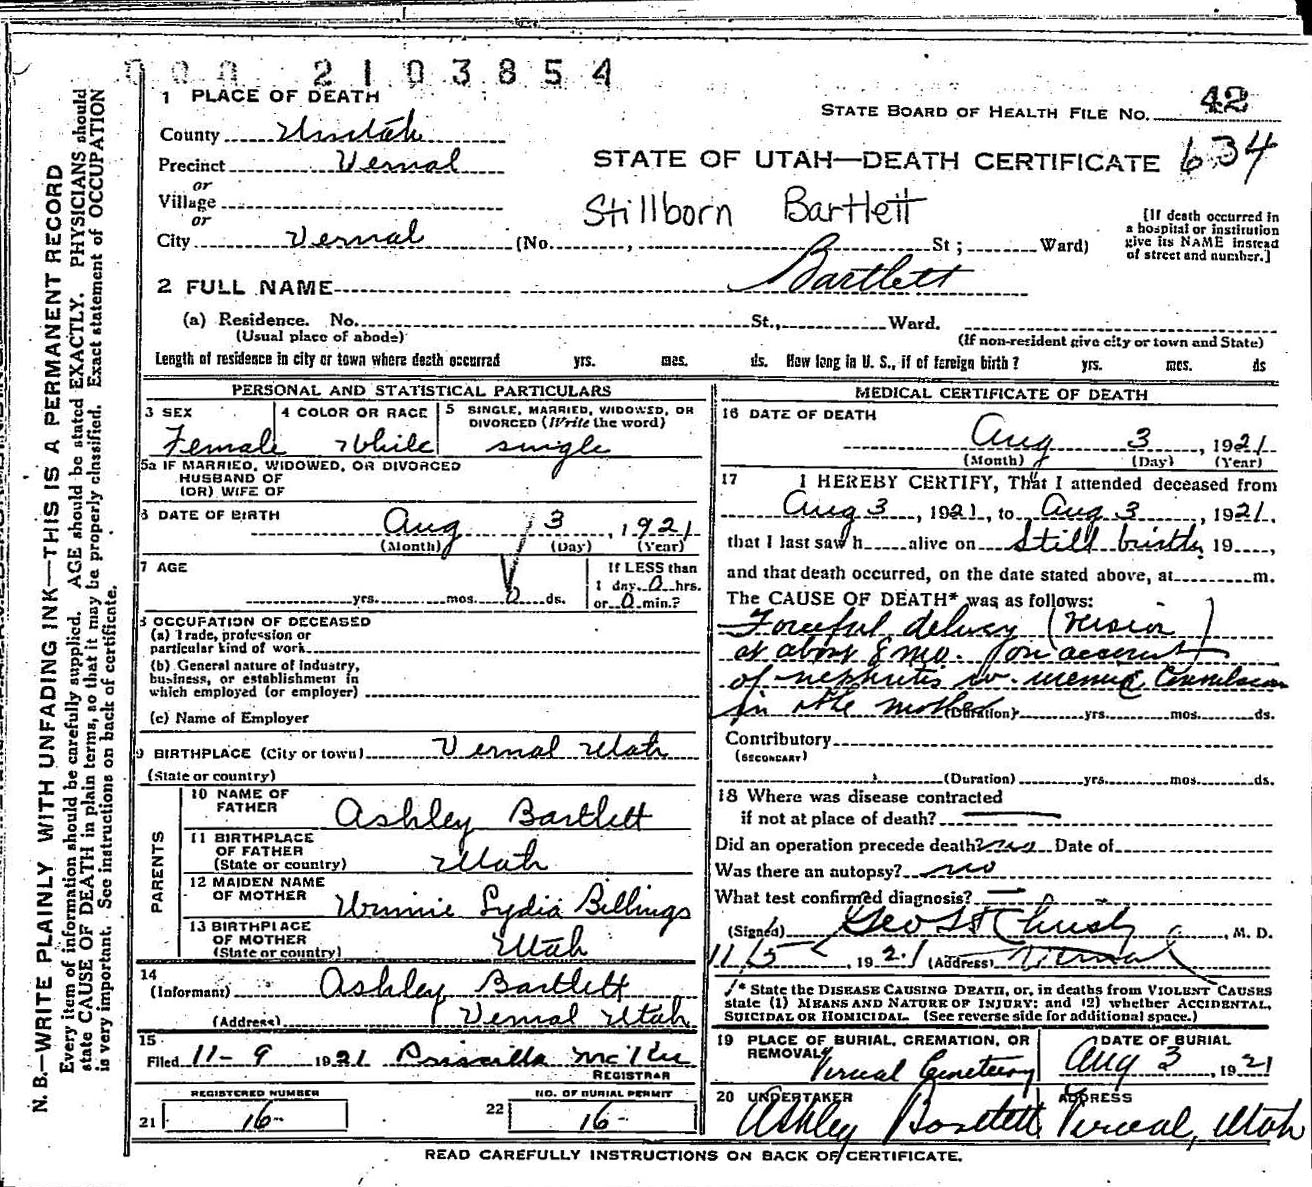 000 2103854
1 PLACE OF DEATH
STATE BOARD OF HEALTH FILE No. 42
County Uintah
Precinct Vernal
STATE OF UTAH—DEATH CERTIFICATE 634
or
Village
Stillborn Bartlett
or
City Vernal (No. , St ; Ward)
[If death occurred in
a hospital or institution
give its NAME instead
of street and number.]
2 FULL NAME Bartlett
(a) Residence. No. St., Ward.
(Usual place of abode) (If non-resident give city or town and State)
Length of residence in city or town where death occurred yrs. mos. ds. How long in U. S., if of foreign birth? yrs. mos. ds
PERSONAL AND STATISTICAL PARTICULARS
3 SEX 4 COLOR OR RACE 5 SINGLE, MARRIED, WIDOWED, OR
DIVORCED (Write the word)
Female White single
5a IF MARRIED, WIDOWED, OR DIVORCED
HUSBAND OF
(OR) WIFE OF
6 DATE OF BIRTH
Aug 3, 1921
(Month) (Day) (Year)
7 AGE If LESS than
1 day 0 hrs.
yrs. mos. 0 ds. or 0 min.?
8 OCCUPATION OF DECEASED
(a) Trade, profession or
particular kind of work
(b) General nature of industry,
business, or establishment in
which employed (or employer)
(c) Name of Employer
9 BIRTHPLACE (City or town) Vernal Utah
(State or country)
PARENTS
10 NAME OF
FATHER Ashley Bartlett
11 BIRTHPLACE
OF FATHER
(State or country) Utah
12 MAIDEN NAME
OF MOTHER Winnie Lydia Billings
13 BIRTHPLACE
OF MOTHER
(State or country) Utah
14
(Informant) Ashley Bartlett
(Address) Vernal Utah
15
Filed 11-9 1921 Priscilla
REGISTRAR
REGISTERED NUMBER NO. OF BURIAL PERMIT
21 16- 22 16-
MEDICAL CERTIFICATE OF DEATH
16 DATE OF DEATH
Aug 3, 1921
(Month) (Day) (Year)
17 I HEREBY CERTIFY, That I attended deceased from
Aug 3, 1921, to Aug 3, 1921,
that I last saw h alive on Still birth, 19 ,
and that death occurred, on the date stated above, at m.
The CAUSE OF DEATH* was as follows:
Forceful delivery (version)
at about 8 mo. on account
of nephritis uremic
in the mother (Duration) yrs. mos. ds.
Contributory
(SECONDARY)
(Duration) yrs. mos. ds.
18 Where was disease contracted
if not at place of death?
Did an operation precede death? no Date of
Was there an autopsy? no
What test confirmed diagnosis?
(Signed) Geo , M. D.
11/5, 1921 (Address) Vernal
* State the DISEASE CAUSING DEATH, or, in deaths from VIOLENT CAUSES
state (1) MEANS AND NATURE OF INJURY; and (2) whether ACCIDENTAL,
SUICIDAL OR HOMICIDAL. (See reverse side for additional space.)
19 PLACE OF BURIAL, CREMATION, OR
REMOVAL DATE OF BURIAL
Vernal Cemetery Aug 3, 1921
20 UNDERTAKER ADDRESS
Ashley Bartlett Vernal, Utah
READ CAREFULLY INSTRUCTIONS ON BACK OF CERTIFICATE.
N. B.—WRITE PLAINLY WITH UNFADING INK—THIS IS A PERMANENT RECORD
Every item of information should be carefully supplied. AGE should be stated EXACTLY. PHYSICIANS should
state CAUSE OF DEATH in plain terms, so that it may be properly classified. Exact statement of OCCUPATION
is very important. See instructions on back of certificate.